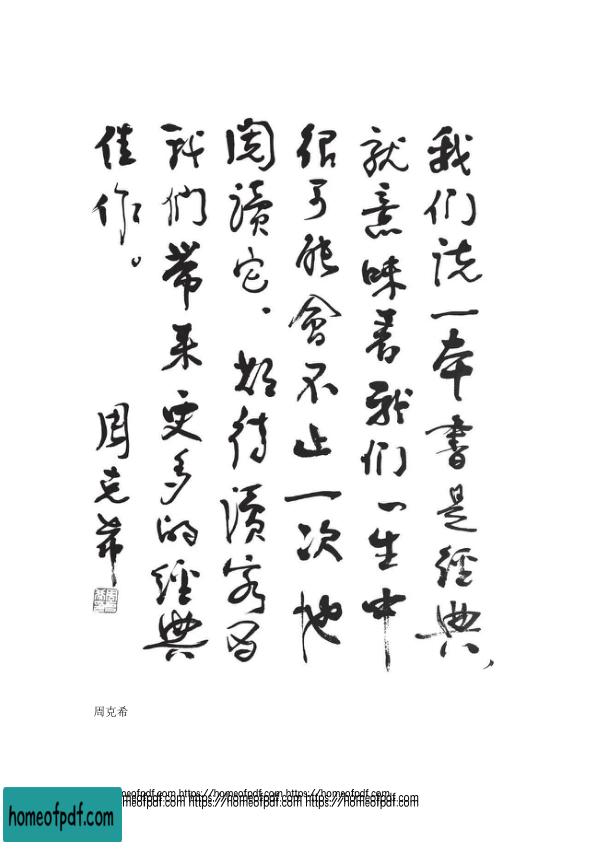 我们説一本書是經典，
就意味着我们一生中
很可能會不止一次地
閱讀它．期待讀客为
我們帶来更多的經典
佳作。
周克希
周克希
homeofpdf.com https://homeofpdf.com https://homeofpdf.com
homeofpdf.com https://homeofpdf.com https://homeofpdf.com
homeofpdf.com